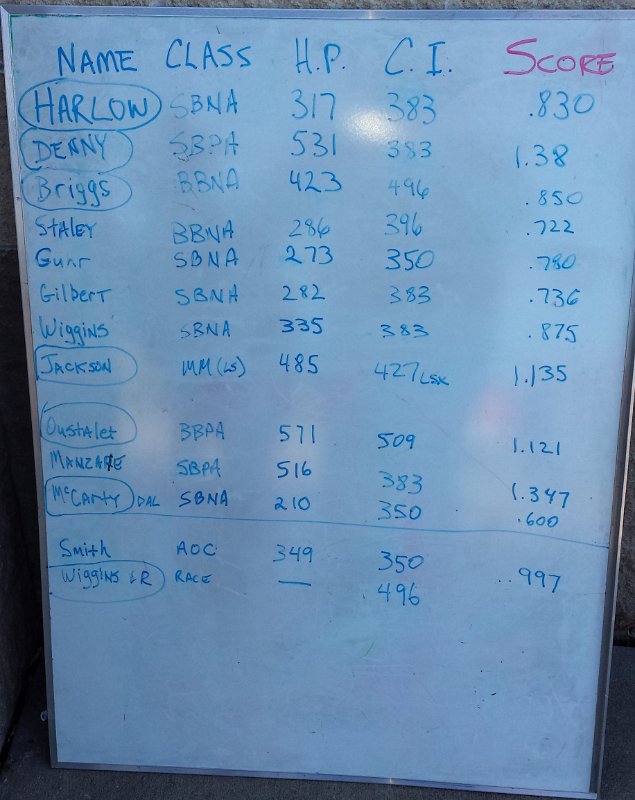 NAME CLASS H.P. C.I. SCORE
HARLOW SBNA 317 383 .830
DENNY SBPA 531 383 1.38
Briggs BBNA 423 496 .850
STALEY BBNA 286 396 .722
Gunr SBNA 273 350 .780
Gilbert SBNA 282 383 .736
Wiggins SBNA 335 383 .875
JACKSON MM (LS) 485 427 LSX 1.135
Oustalet BBPA 571 509 1.121
MANZARE SBPA 516 383 1.347
McCarty DAL SBNA 210 350 .600
Smith AOC 349 350 .997
Wiggins JR RACE — 496